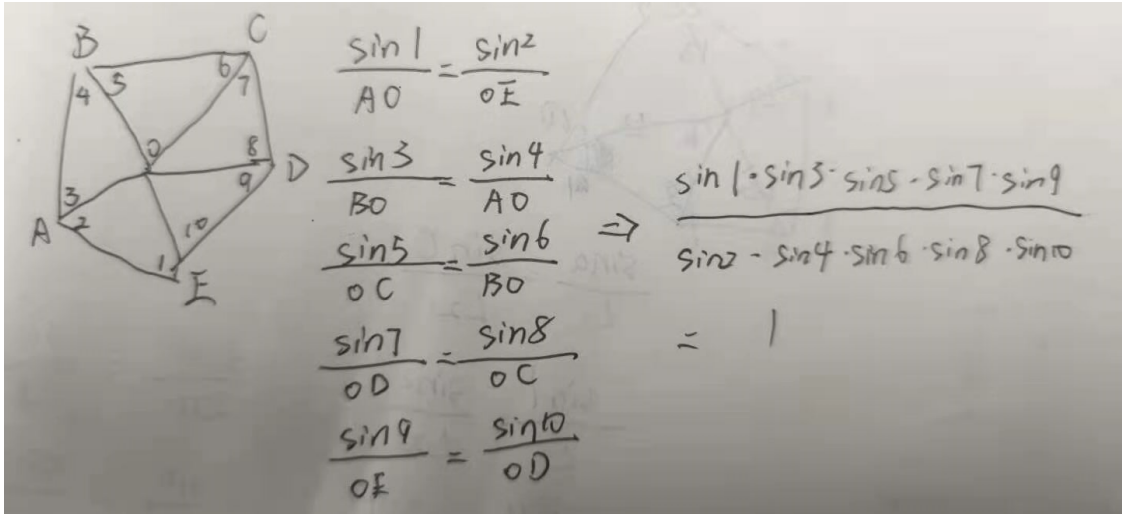 B
C
4
5
6
7
O
8
D
9
3
A
2
10
1
E
sin1/AO = sin2/OE
sin3/BO = sin4/AO
sin5/OC = sin6/BO
sin7/OD = sin8/OC
sin9/OE = sin10/OD
⇒ sin1·sin3·sin5·sin7·sin9 / sin2·sin4·sin6·sin8·sin10
= 1